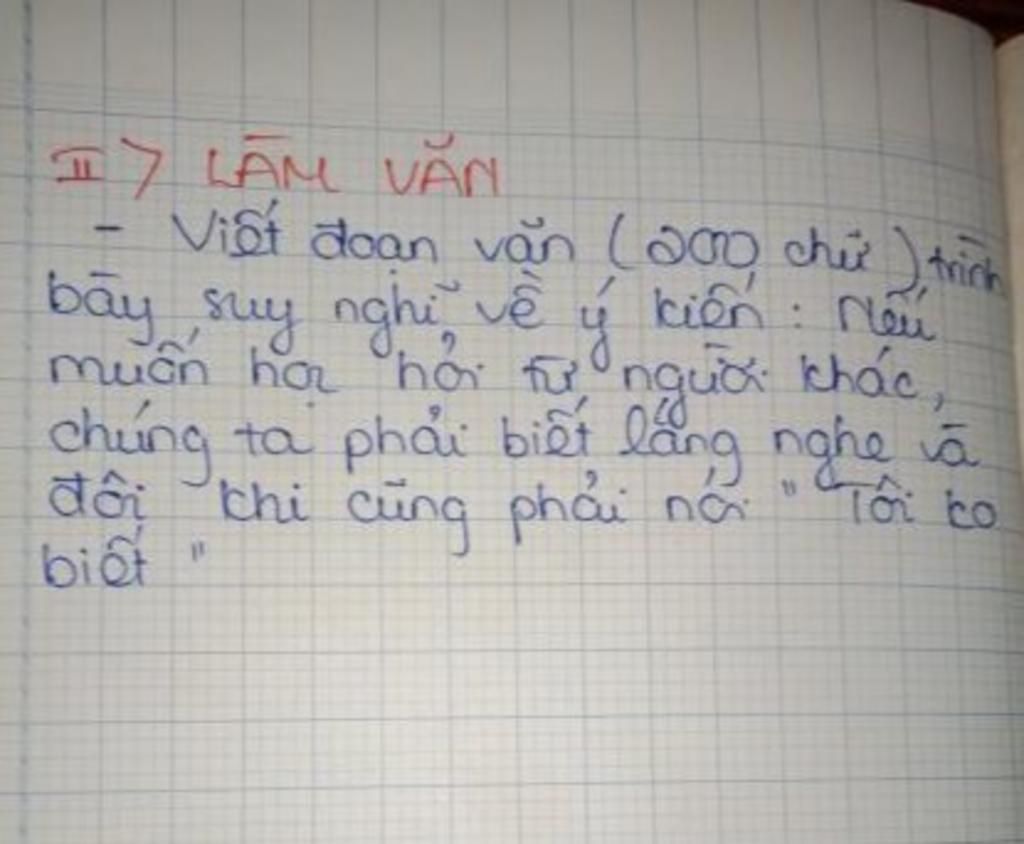 II> LÀM VĂN
- Viết đoạn văn (200 chữ) trình
bày suy nghĩ về ý kiến : Nếu
muốn học hỏi từ người khác,
chúng ta phải biết lắng nghe và
đôi khi cũng phải nói " Tôi ko
biết "